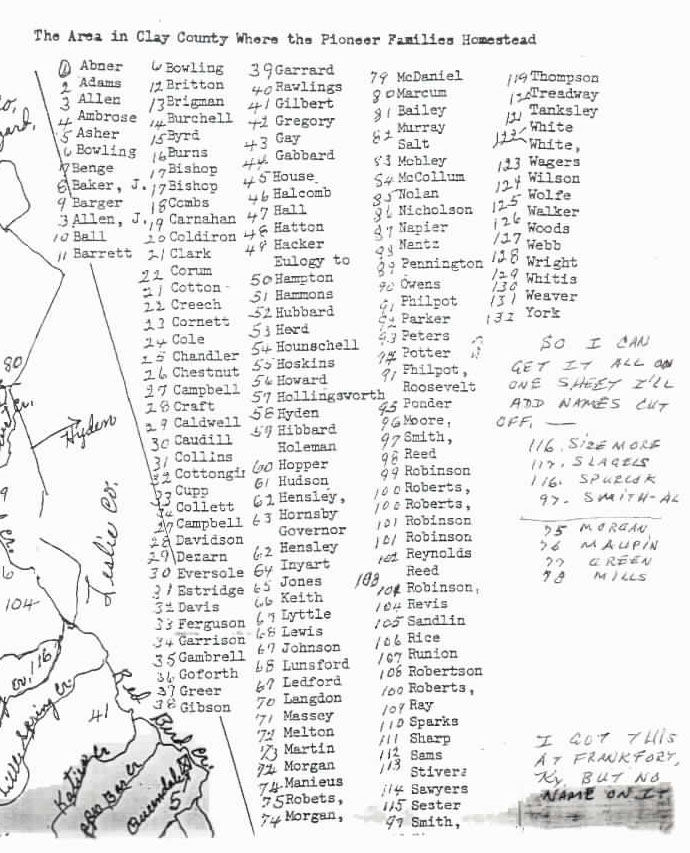 The Area in Clay County Where the Pioneer Families Homestead
1 Abner
2 Adams
3 Allen
4 Ambrose
5 Asher
6 Bowling
7 Benge
8 Baker, J.
9 Barger
3 Allen, J.
10 Ball
11 Barrett
6 Bowling
12 Britton
13 Brigman
14 Burchell
15 Byrd
16 Burns
17 Bishop
17 Bishop
18 Combs
19 Carnahan
20 Coldiron
21 Clark
22 Corum
21 Cotton
22 Creech
23 Cornett
24 Cole
25 Chandler
26 Chestnut
27 Campbell
28 Craft
29 Caldwell
30 Caudill
31 Collins
32 Cottongin
33 Cupp
34 Collett
27 Campbell
28 Davidson
29 Dezarn
30 Eversole
31 Estridge
32 Davis
33 Ferguson
34 Garrison
35 Gambrell
36 Goforth
37 Greer
38 Gibson
39 Garrard
40 Rawlings
41 Gilbert
42 Gregory
43 Gay
44 Gabbard
45 House
46 Halcomb
47 Hall
48 Hatton
49 Hacker
Eulogy to
50 Hampton
51 Hammons
52 Hubbard
53 Herd
54 Hounschell
55 Hoskins
56 Howard
57 Hollingsworth
58 Hyden
59 Hibbard
Holeman
60 Hopper
61 Hudson
62 Hensley,
63 Hornsby
Governor
62 Hensley
64 Inyart
65 Jones
66 Keith
67 Lyttle
68 Lewis
67 Johnson
68 Lunsford
69 Ledford
70 Langdon
71 Massey
72 Melton
73 Martin
72 Morgan
74 Manieus
75 Robets,
74 Morgan,
79 McDaniel
80 Marcum
81 Bailey
82 Murray
Salt
83 Mobley
84 McCollum
85 Nolan
86 Nicholson
87 Napier
88 Nantz
89 Pennington
90 Owens
91 Philpot
92 Parker
93 Peters
94 Potter
91 Philpot,
Roosevelt
95 Ponder
96 Moore,
97 Smith,
98 Reed
99 Robinson
100 Roberts,
100 Roberts,
101 Robinson
101 Robinson
102 Reynolds
103 Reed
101 Robinson,
104 Revis
105 Sandlin
106 Rice
107 Runion
108 Robertson
100 Roberts,
109 Ray
110 Sparks
111 Sharp
112 Sams
113 Stivers
114 Sawyers
115 Sester
97 Smith,
119 Thompson
120 Treadway
121 Tanksley
122 White
White,
123 Wagers
124 Wilson
125 Wolfe
126 Walker
127 Woods
128 Webb
129 Wright
130 Whitis
131 Weaver
132 York
SO I CAN
GET IT ALL ON
ONE SHEET I'LL
ADD NAMES CUT
OFF. —
116. SIZEMORE
117. SLAGELS
116. SPURLOK
97. SMITH-AL
75 MORGAN
76 MAUPIN
77 GREEN
78 MILLS
I GOT THIS
AT FRANKFORT,
KY. BUT NO
NAME ON IT
Co.
80
Hyden
Leslie Co.
104
116
41
Red Bird Cr.
Spring Cr.
Katies Cr.
5